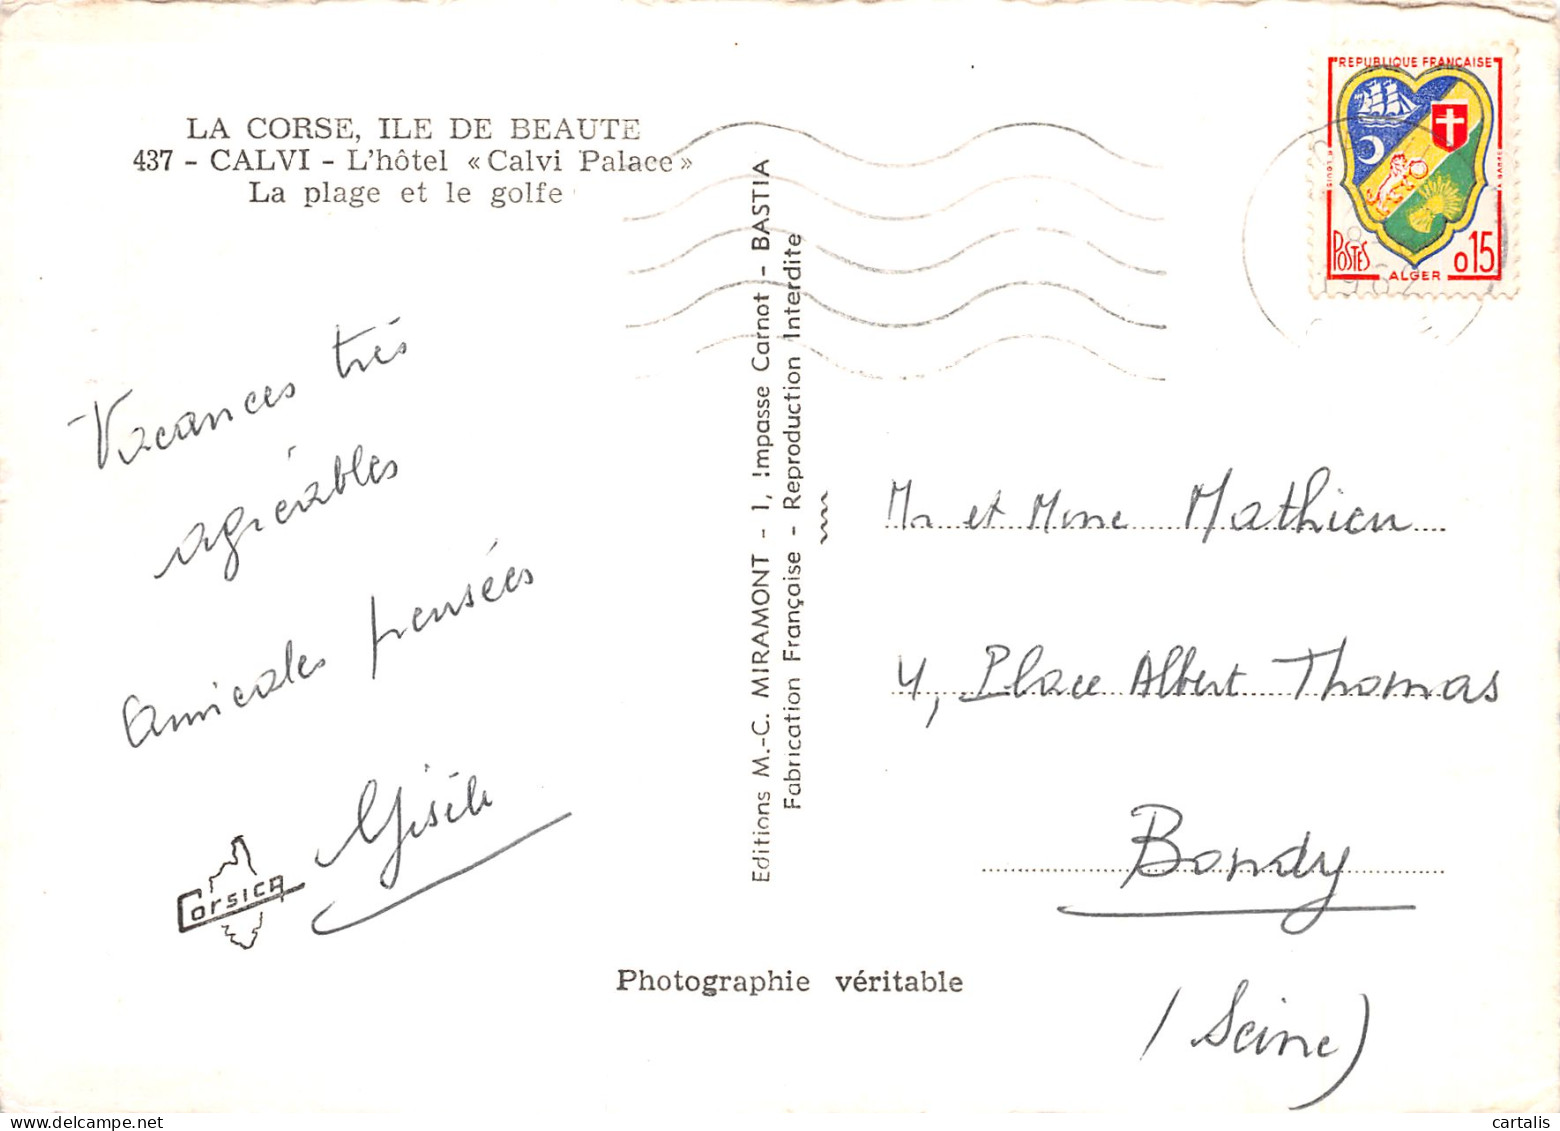 LA CORSE, ILE DE BEAUTE
437 - CALVI - L'hôtel «Calvi Palace»
La plage et le golfe
Vacances très
agréables
amicales pensées
Gisèle
Corsica
Editions M.-C. MIRAMONT - 1, Impasse Carnot - BASTIA
Fabrication Française - Reproduction Interdite
Photographie véritable
REPUBLIQUE FRANÇAISE
POSTES
ALGER
0 15
1962
Mr et Mme Mathieu
4, Place Albert Thomas
Bondy
(Seine)
cartalis